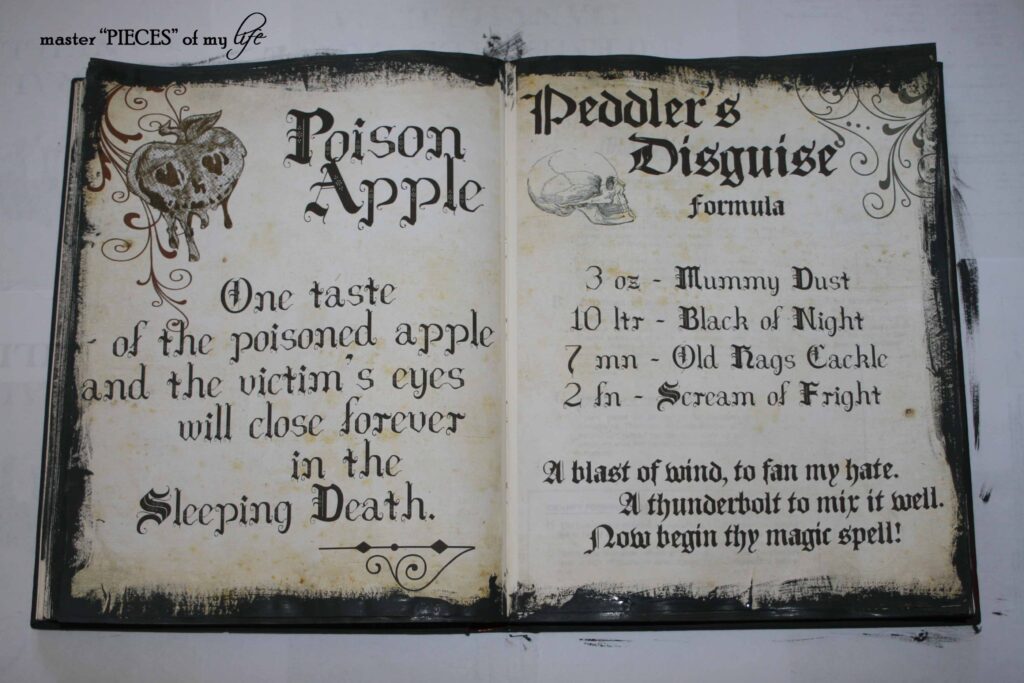 master “PIECES” of my life
Poison
Apple
One taste
of the poisoned apple
and the victim's eyes
will close forever
in the
Sleeping Death.
Peddler's
Disguise
formula
3 oz - Mummy Dust
10 ltr - Black of Night
7 mn - Old Hags Cackle
2 fn - Scream of Fright
A blast of wind, to fan my hate.
A thunderbolt to mix it well.
Now begin thy magic spell!